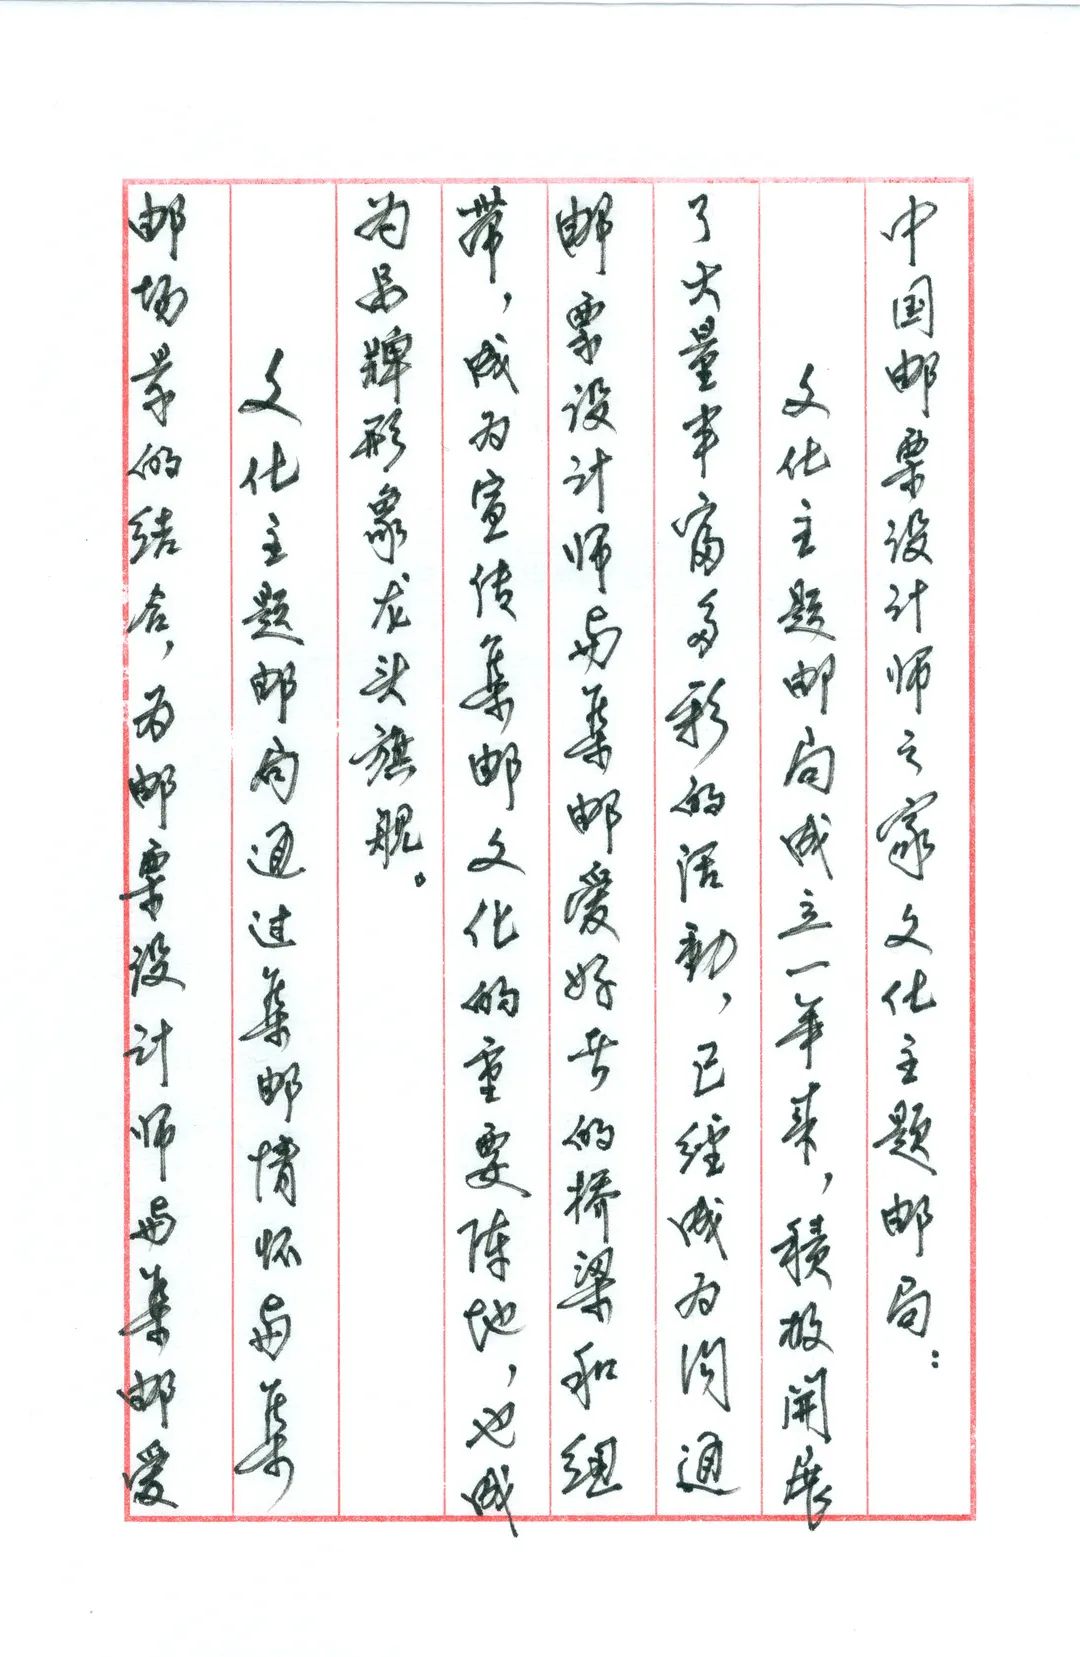 中国邮票设计师之家文化主题邮局：
文化主题邮局成立一年来，积极開展
了大量丰富多彩的活動，已经成为沟通
邮票设计师与集邮爱好者的桥梁和纽
带，成为宣传集邮文化的重要阵地，也成
为品牌形象龙头旗舰。
文化主题邮局通过集邮情怀与集
邮场景的结合，为邮票设计师与集邮爱